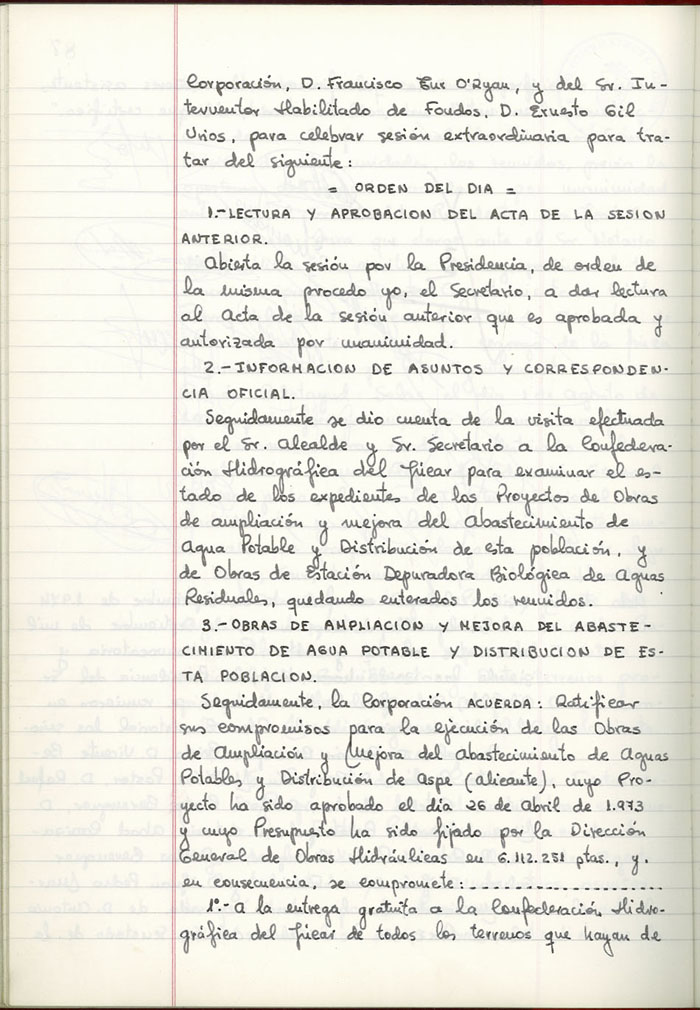 Corporación, D. Francisco Eur O'Ryan, y del Sr. In-
terventor Habilitado de Fondos, D. Ernesto Gil
Urios, para celebrar sesión extraordinaria para tra-
tar del siguiente:
= ORDEN DEL DIA =
1.-LECTURA Y APROBACION DEL ACTA DE LA SESION
ANTERIOR.
Abierta la sesión por la Presidencia, de orden de
la misma procedo yo, el Secretario, a dar lectura
al Acta de la sesión anterior que es aprobada y
autorizada por unanimidad.
2.-INFORMACION DE ASUNTOS Y CORRESPONDEN-
CIA OFICIAL.
Seguidamente se dio cuenta de la visita efectuada
por el Sr. Alcalde y Sr. Secretario a la Confedera-
ción Hidrográfica del Júcar para examinar el es-
tado de los expedientes de los Proyectos de Obras
de ampliación y mejora del Abastecimiento de
Agua Potable y Distribución de esta población, y
de Obras de Estación Depuradora Biológica de Aguas
Residuales, quedando enterados los reunidos.
3.-OBRAS DE AMPLIACION Y MEJORA DEL ABASTE-
CIMIENTO DE AGUA POTABLE Y DISTRIBUCION DE ES-
TA POBLACION.
Seguidamente, la Corporación ACUERDA: Ratificar
sus compromisos para la ejecución de las Obras
de Ampliación y Mejora del Abastecimiento de Aguas
Potables y Distribución de Aspe (Alicante), cuyo Pro-
yecto ha sido aprobado el dia 26 de Abril de 1.973
y cuyo Presupuesto ha sido fijado por la Dirección
General de Obras Hidráulicas en 6.112.251 ptas., y,
en consecuencia, se compromete:.....................
1º.- A la entrega gratuita a la Confederación Hidro-
gráfica del Júcar de todos los terrenos que hayan de